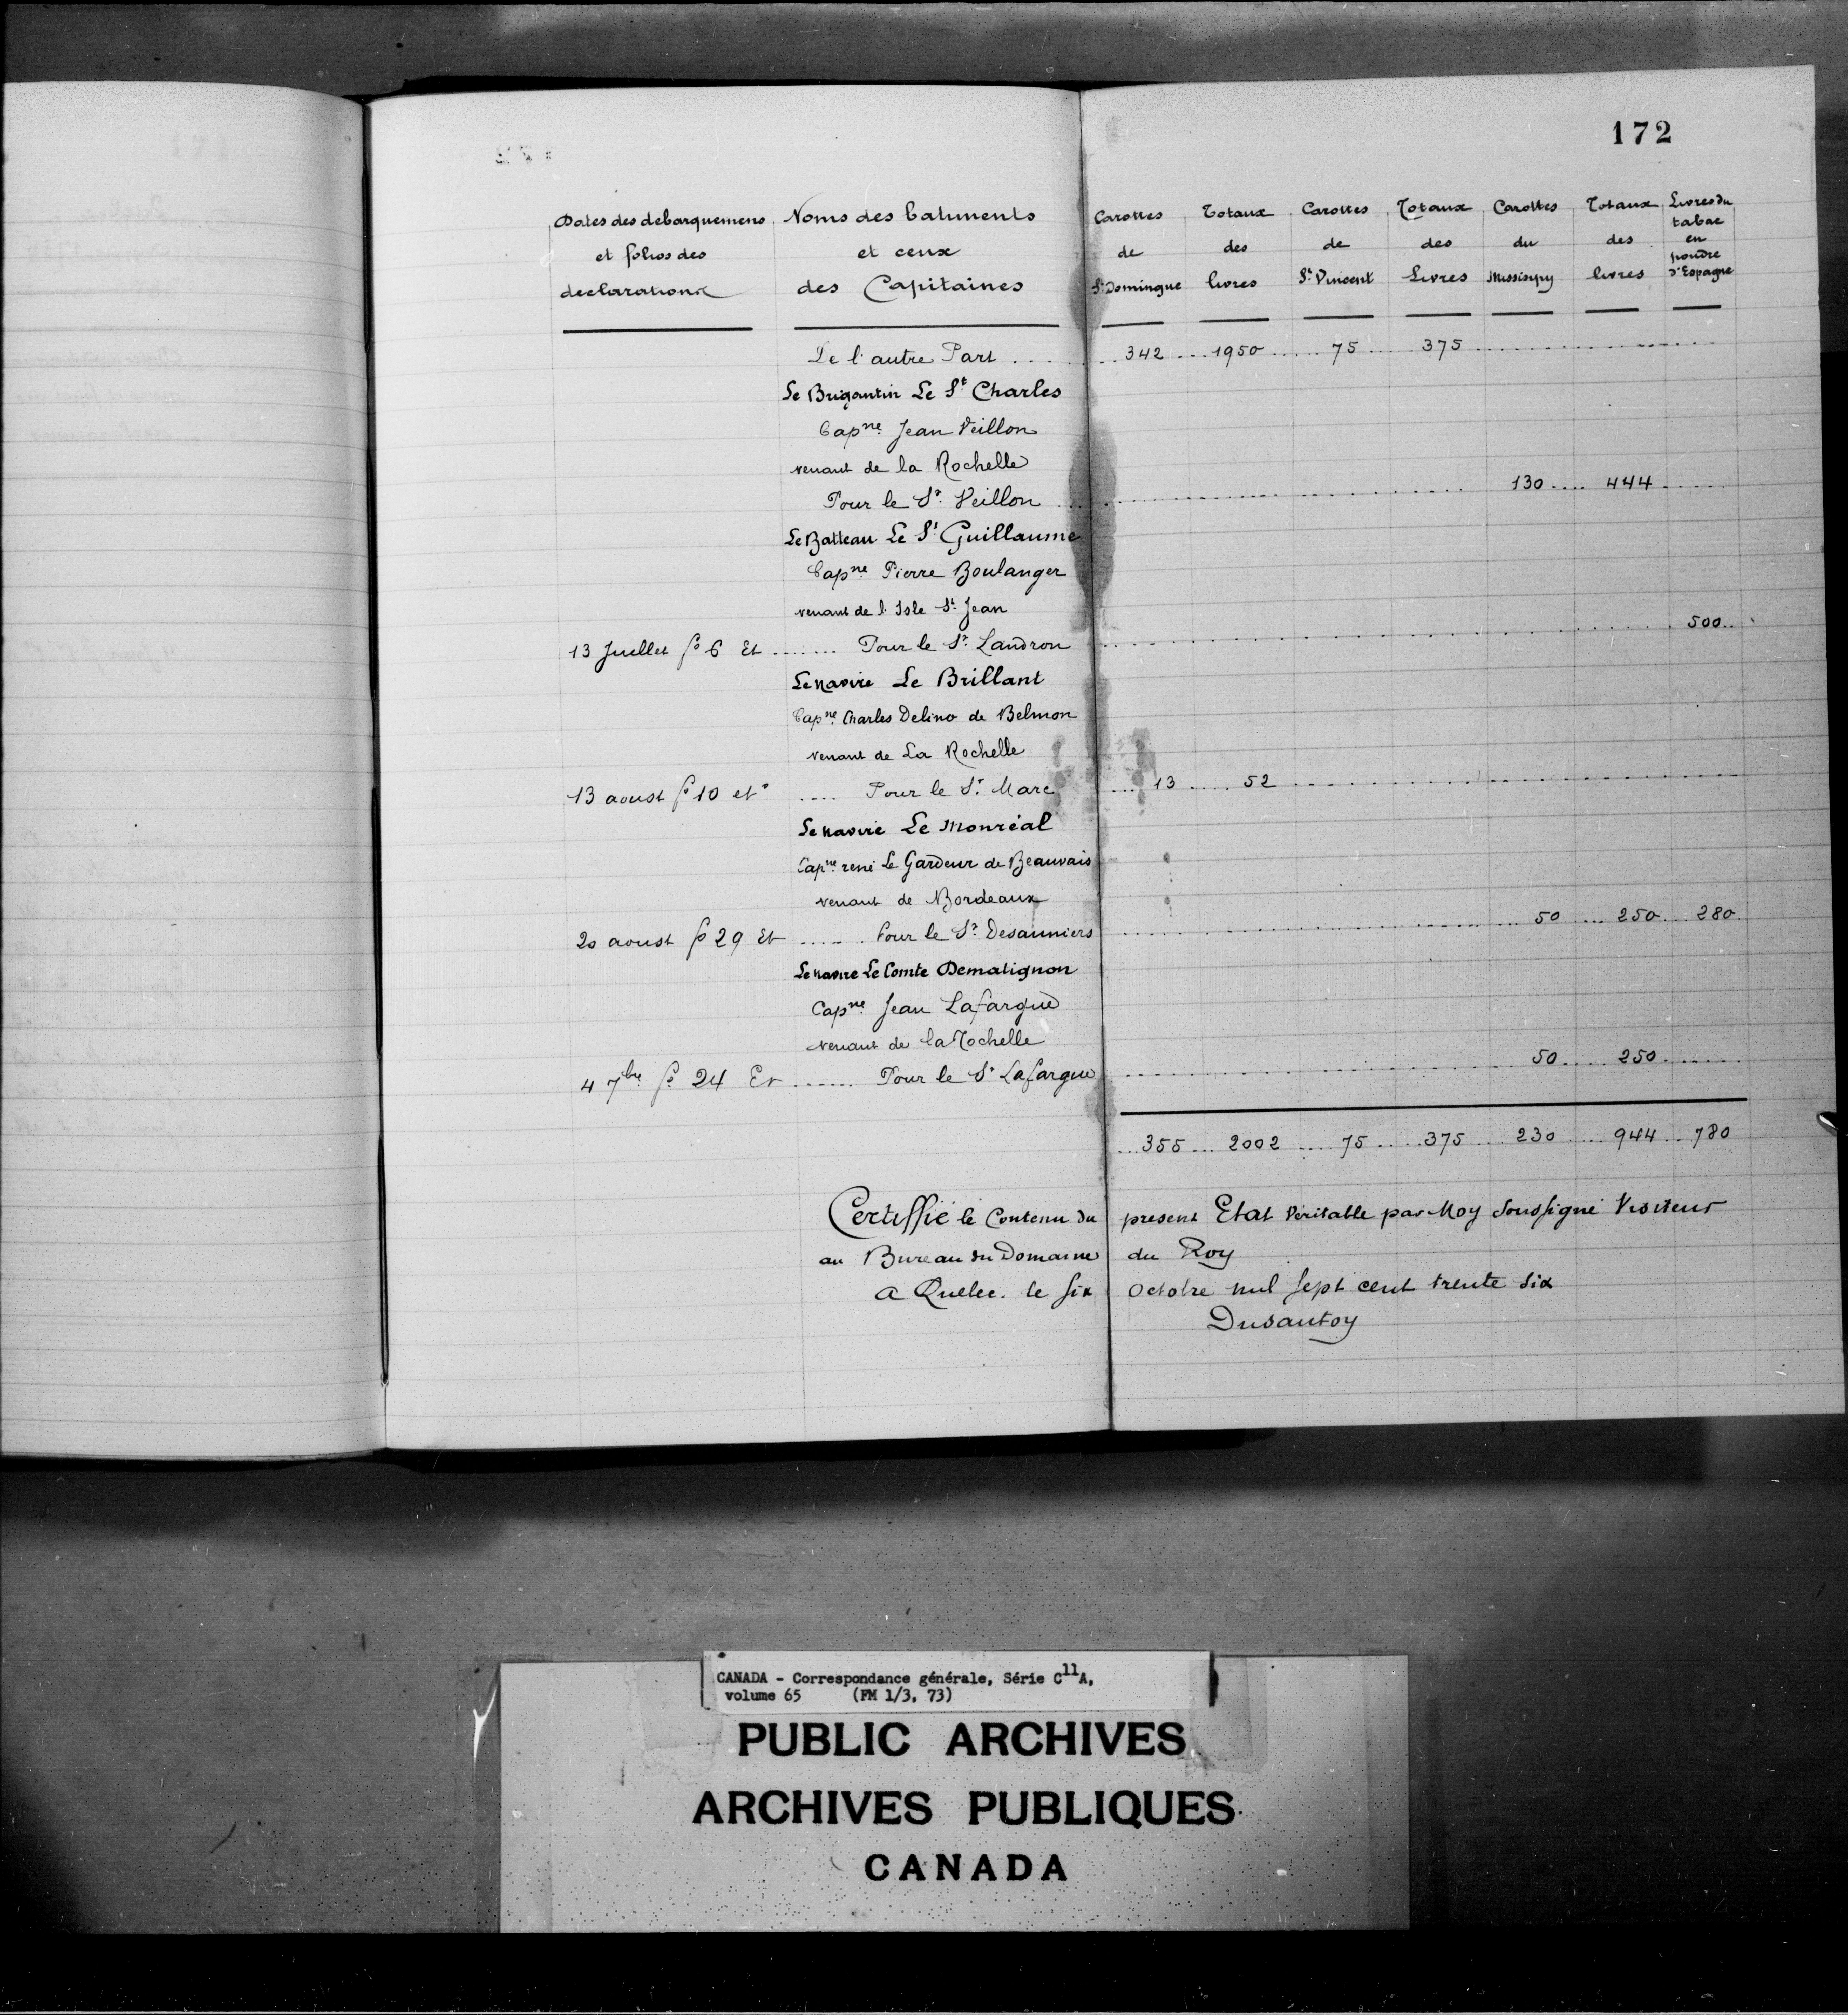 172
Dates des debarquemens et folios des declarations
Noms des batiments et ceux des Capitaines
Carottes de St Domingue
Totaux des livres
Carottes de St Vincent
Totaux des Livres
Carottes du Missisipy
Totaux des livres
Livres du tabac en poudre d'Espagne
De l'autre Part .... 342 .... 1950 .... 75 .... 375
Le Brigantin Le St Charles
Capne Jean Veillon
venant de la Rochelle
Pour le Sr Veillon .... 130 .... 444
Le Batteau Le St Guillaume
Capne Pierre Boulanger
venant de l'Isle St Jean
13 Juellet fo 6 Et .... Pour le Sr Landron .... 500
Le navire Le Brillant
Capne Charles Delino de Belmon
venant de La Rochelle
13 aoust fo 10 et .... Pour le Sr Marc .... 13 .... 52
Le navire Le Monréal
Capne rené Le Gardeur de Beauvais
venant de Bordeaux
20 aoust fo 29 Et .... Pour le Sr Desauniers .... 50 .... 250 .... 280
Le navire Le Comte Dematignon
Capne Jean Lafargue
venant de la Rochelle
4 7bre fo 24 Et .... Pour le Sr Lafargue .... 50 .... 250
355 .... 2002 .... 75 .... 375 .... 230 .... 944 .... 780
Certiffié le Contenu du present Etat véritable par Moy Soussigné Visiteur
au Bureau du Domaine du Roy
a Quebec le six octobre mil sept cent trente six
Dusautoy
CANADA - Correspondance générale, Série C11A,
volume 65 (FM 1/3, 73)
PUBLIC ARCHIVES
ARCHIVES PUBLIQUES
CANADA